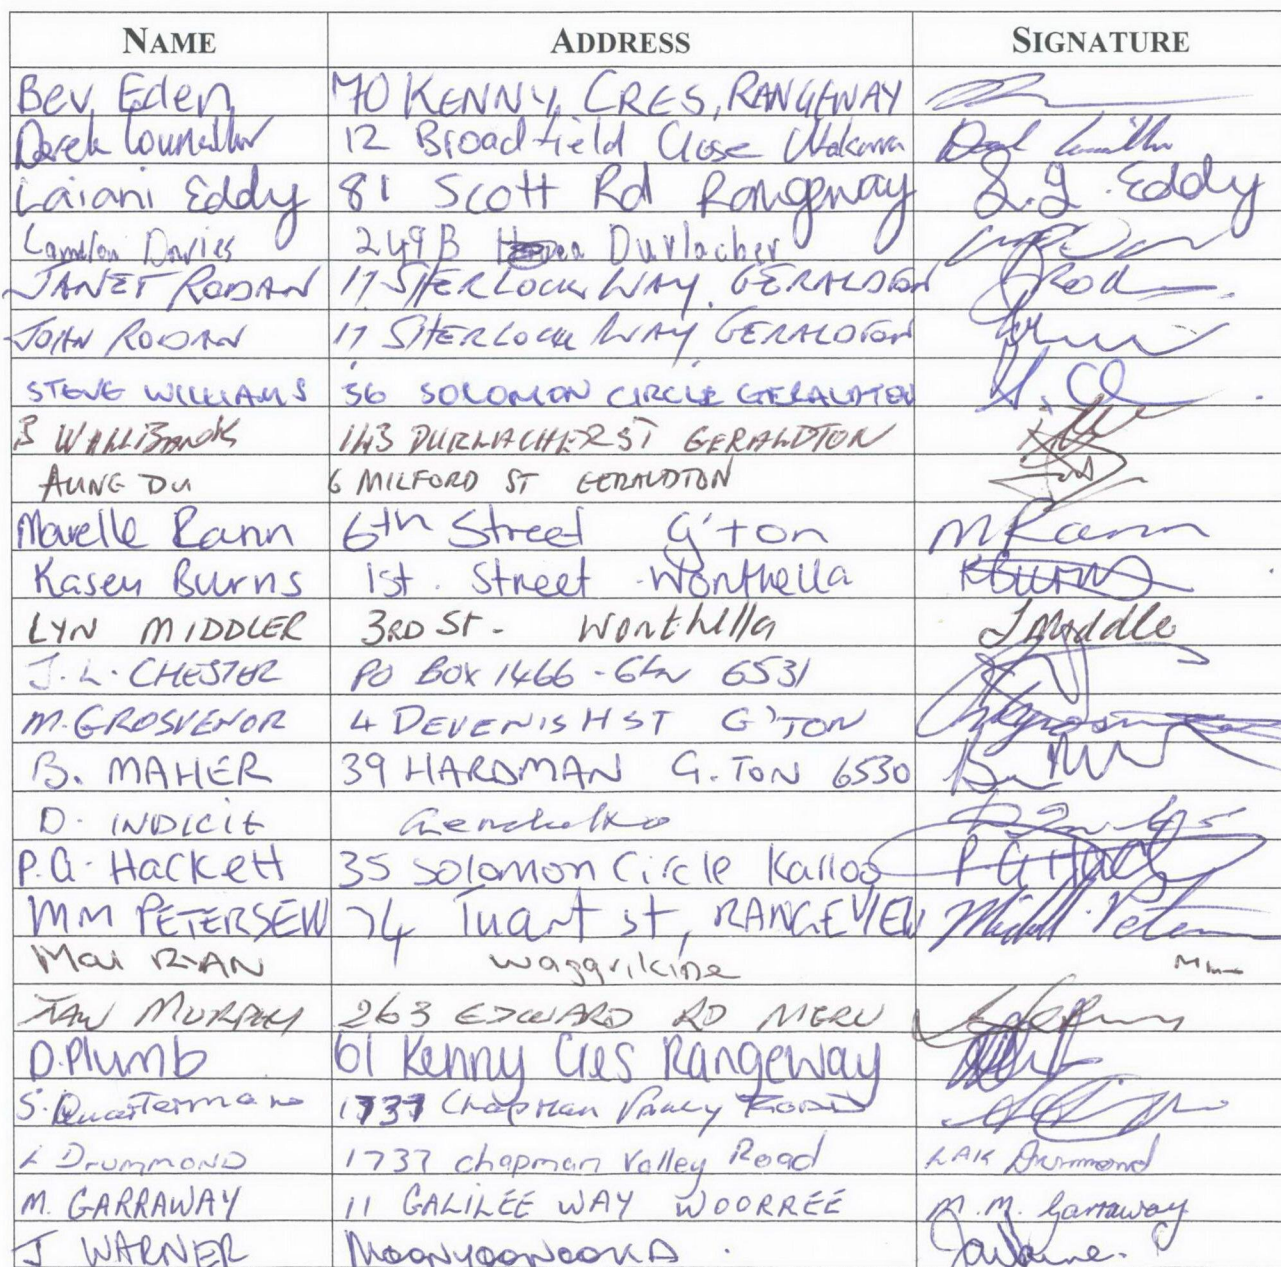 NAME ADDRESS SIGNATURE
Bev Eden 70 KENNY CRES, RANGEWAY
Derek Councillor 12 Broadfield Close Utakarra
Laiani Eddy 81 Scott Rd Rangeway L.J. Eddy
Davies 249B Durlacher
JANET RODAN 17 SHERLOCK WAY. GERALDTON
JOHN RODAN 17 SHERLOCK WAY GERALDTON
STEVE WILLIAMS 36 SOLOMON CIRCLE GERALDTON
B WALLBANK 143 DURLACHER ST GERALDTON
AUNG DU 6 MILFORD ST GERALDTON
Marelle Rann 6th Street G'ton M Rann
Kasey Burns 1st. Street Wonthella K Burns
LYN MIDDLER 3RD St. Wonthella L Middle
J.L. CHESTER PO BOX 1466 - 6531
M. GROSVENOR 4 DEVENISH ST G'TON
B. MAHER 39 HARDMAN G.TON 6530
D. INDICIT
P.G. Hackett 35 Solomon Circle Karloo P G Hackett
MM PETERSEN 74 Tuart st, RANGEVIEW
Mal RYAN Waggrikine
IAN MURPHY 263 EDWARD RD MERU
D. Plumb 61 Kenny Cres Rangeway
S. Quartermaine 1737 Chapman Valley Road
L Drummond 1737 Chapman Valley Road LAK Drummond
M. GARRAWAY 11 GALILEE WAY WOORREE M.M. Garraway
J WARNER MOONYOONOOKA.